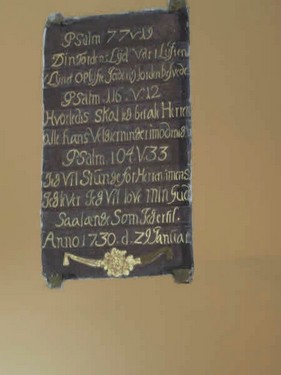 Psalm 77 V 19
Din Tordens Lyd Var i Luften
Liunet Oplyste Joderig Jorden bevede
Psalm. 116. V. 12
Hvorledis Skal jeg betale Herren
alle hans Velgierninger imod mig
Psalm 104. V 33
Jeg Vil Siunge for Herren imens
Jeg lever Jeg Vil love Min Gud
Saalænge Som Jeg er til.
Anno 1730. d. 29 Januar.